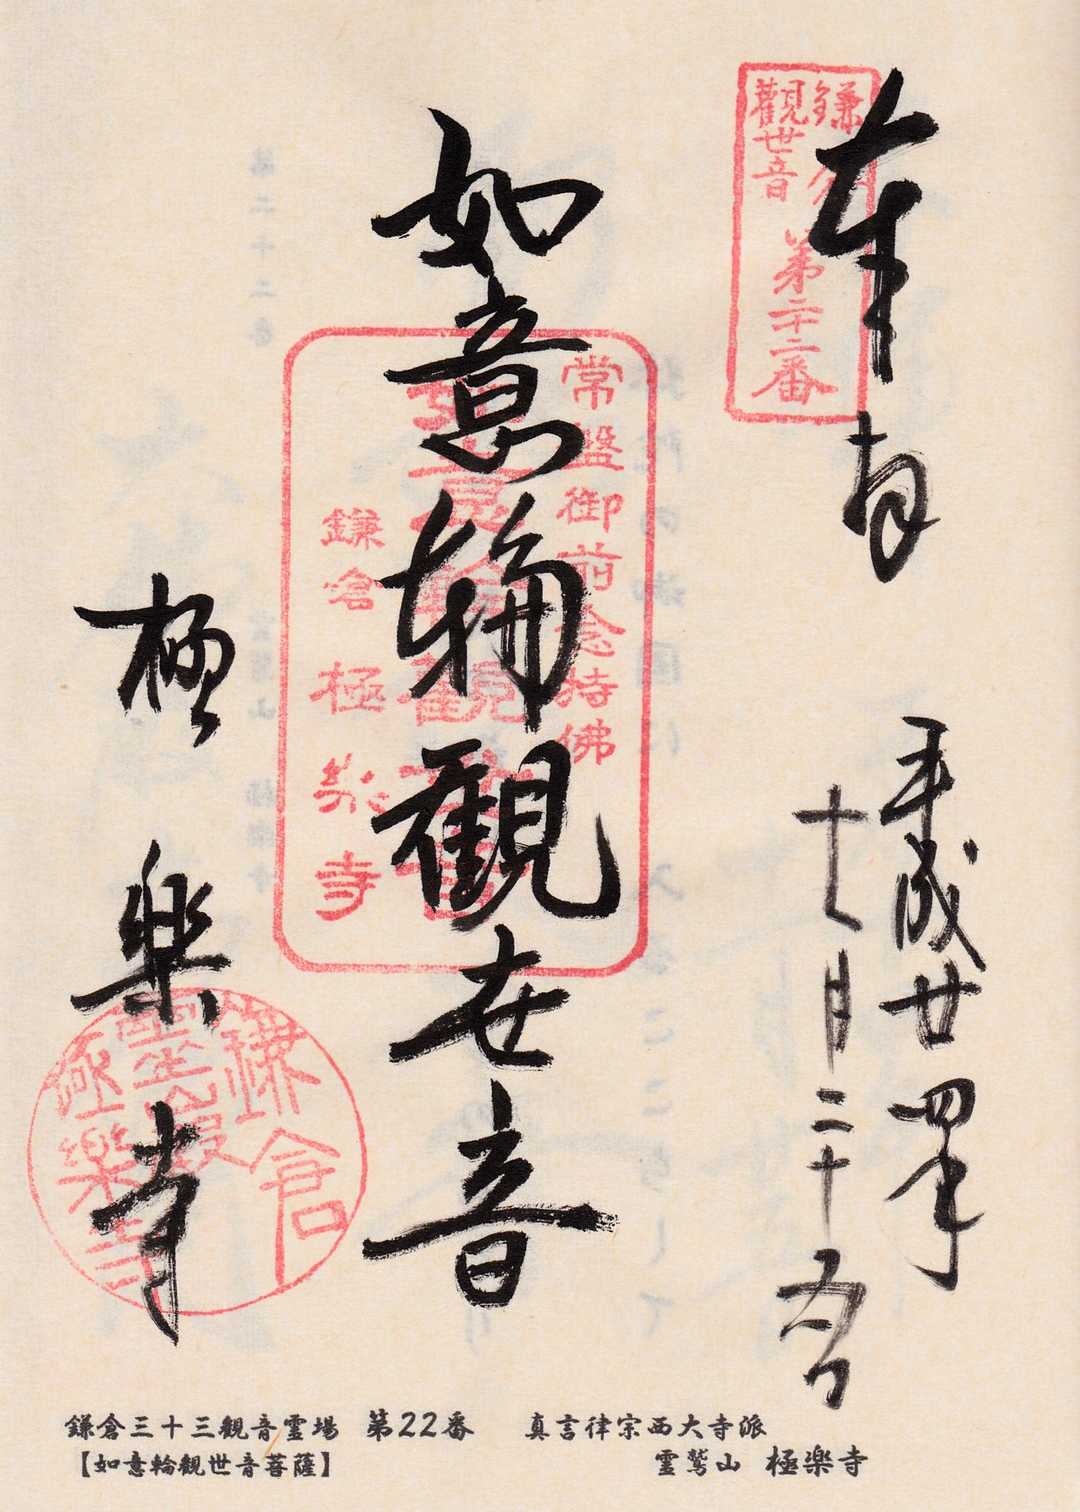 鎌倉
觀世音
第二十二番
奉拝
平成廿四年
十一月二十五日
如意輪觀世音
常盤御前念持佛
鎌倉極楽寺
極楽寺
鎌倉
極樂寺
鎌倉三十三観音霊場　第22番
【如意輪観世音菩薩】
真言律宗西大寺派
霊鷲山　極楽寺